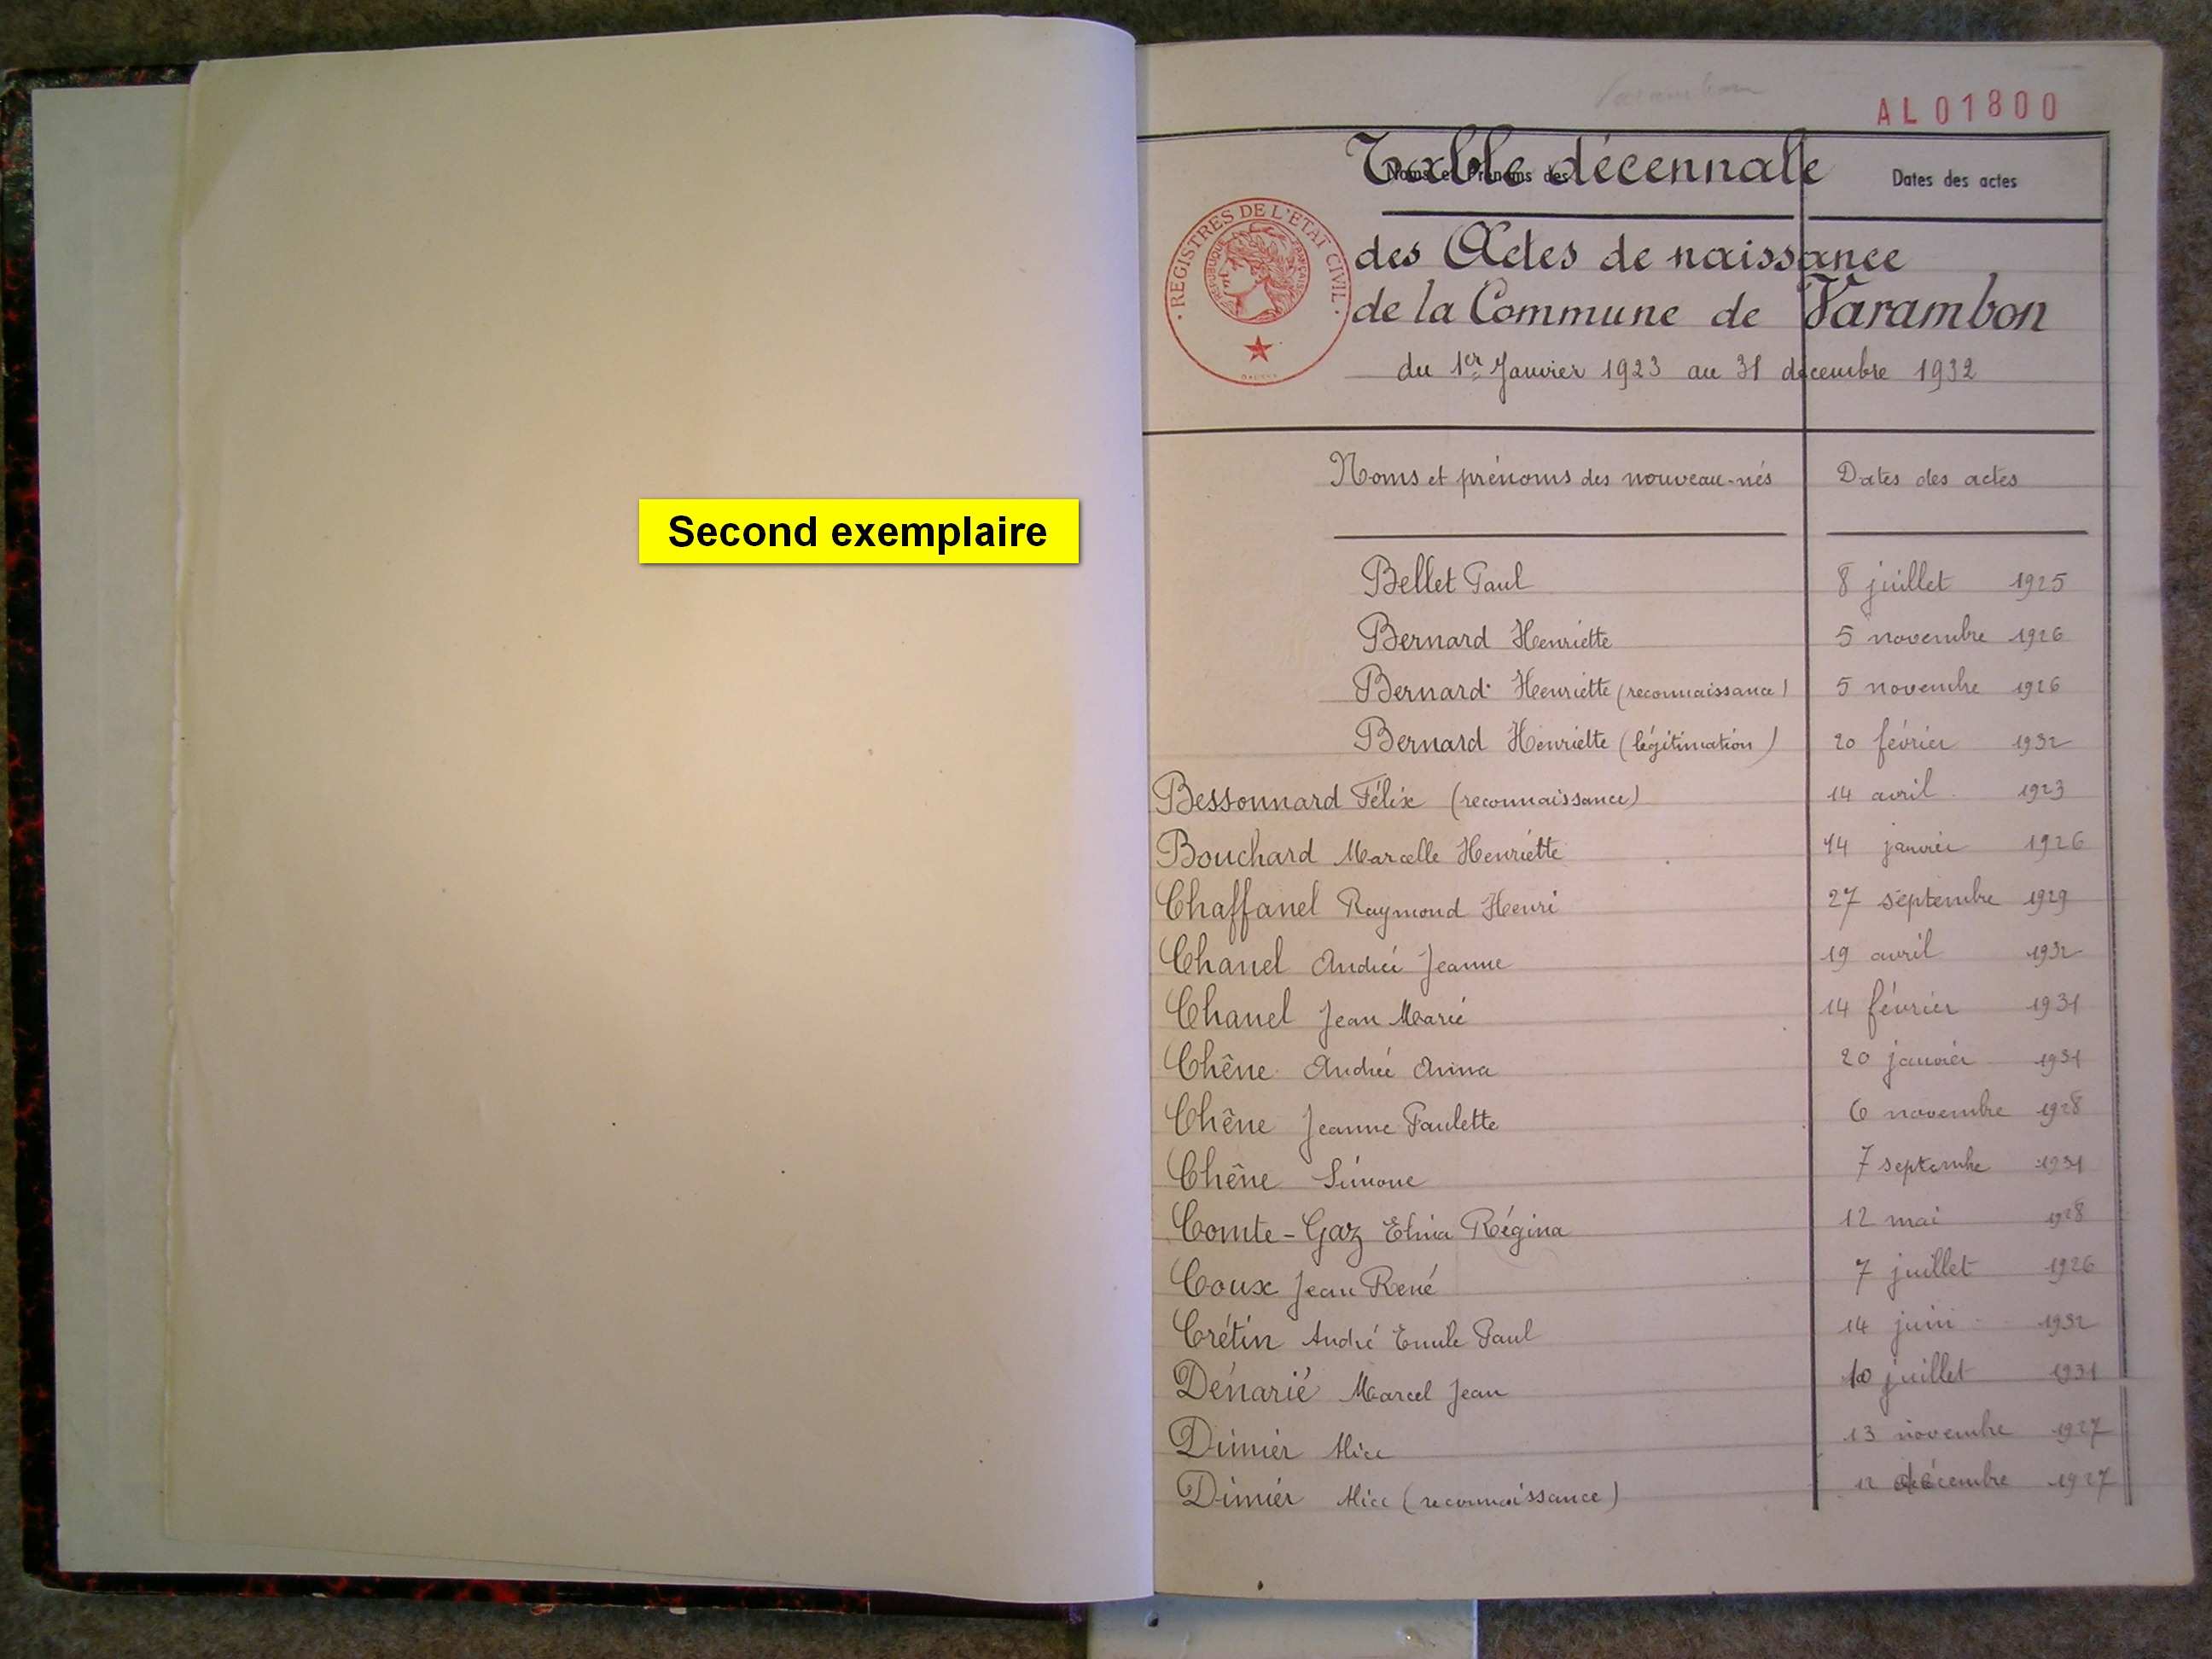 Second exemplaire
Varambon
AL01800
Table décennale
Noms et Prénoms des
Dates des actes
REGISTRES DE L'ETAT CIVIL
REPUBLIQUE FRANCAISE
des Actes de naissance
de la Commune de Varambon
du 1er Janvier 1923 au 31 décembre 1932
Noms et prénoms des nouveau-nés Dates des actes
Bellet Paul 8 juillet 1925
Bernard Henriette 5 novembre 1926
Bernard Henriette (reconnaissance) 5 novembre 1926
Bernard Henriette (légitimation) 20 février 1932
Bessonnard Félix (reconnaissance) 14 avril 1923
Bouchard Marcelle Henriette 14 janvier 1926
Chaffanel Raymond Henri 27 septembre 1929
Chanel Andrée Jeanne 19 avril 1932
Chanel Jean Marie 14 février 1931
Chêne Andrée Anna 20 janvier 1931
Chêne Jeanne Paulette 6 novembre 1928
Chêne Simone 7 septembre 1931
Comte-Gaz Elina Régina 12 mai 1928
Coux Jean René 7 juillet 1926
Crétin André Emile Paul 14 juin 1932
Dénarié Marcel Jean 10 juillet 1931
Dimier Alice 13 novembre 1927
Dimier Alice (reconnaissance) 12 décembre 1927